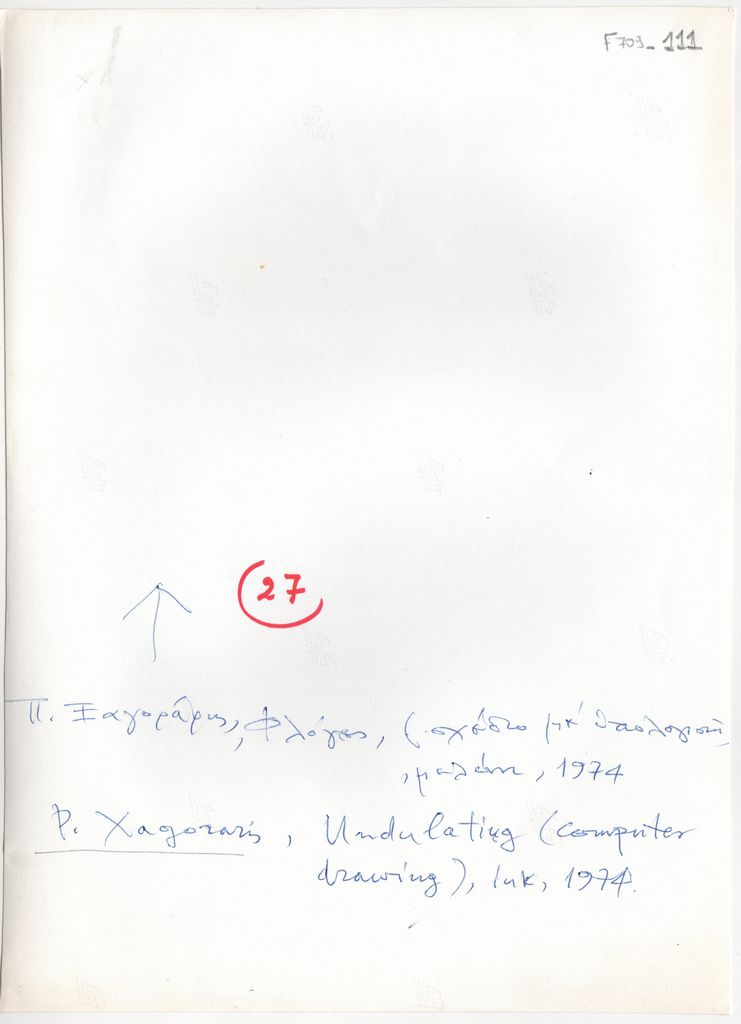 F709_111
27
Π. Ξαγοράρης, Φλόγες, (σχέδιο με υπολογιστή,
μελάνι, 1974
P. Xagoraris, Undulating (computer
drawing), Ink, 1974.